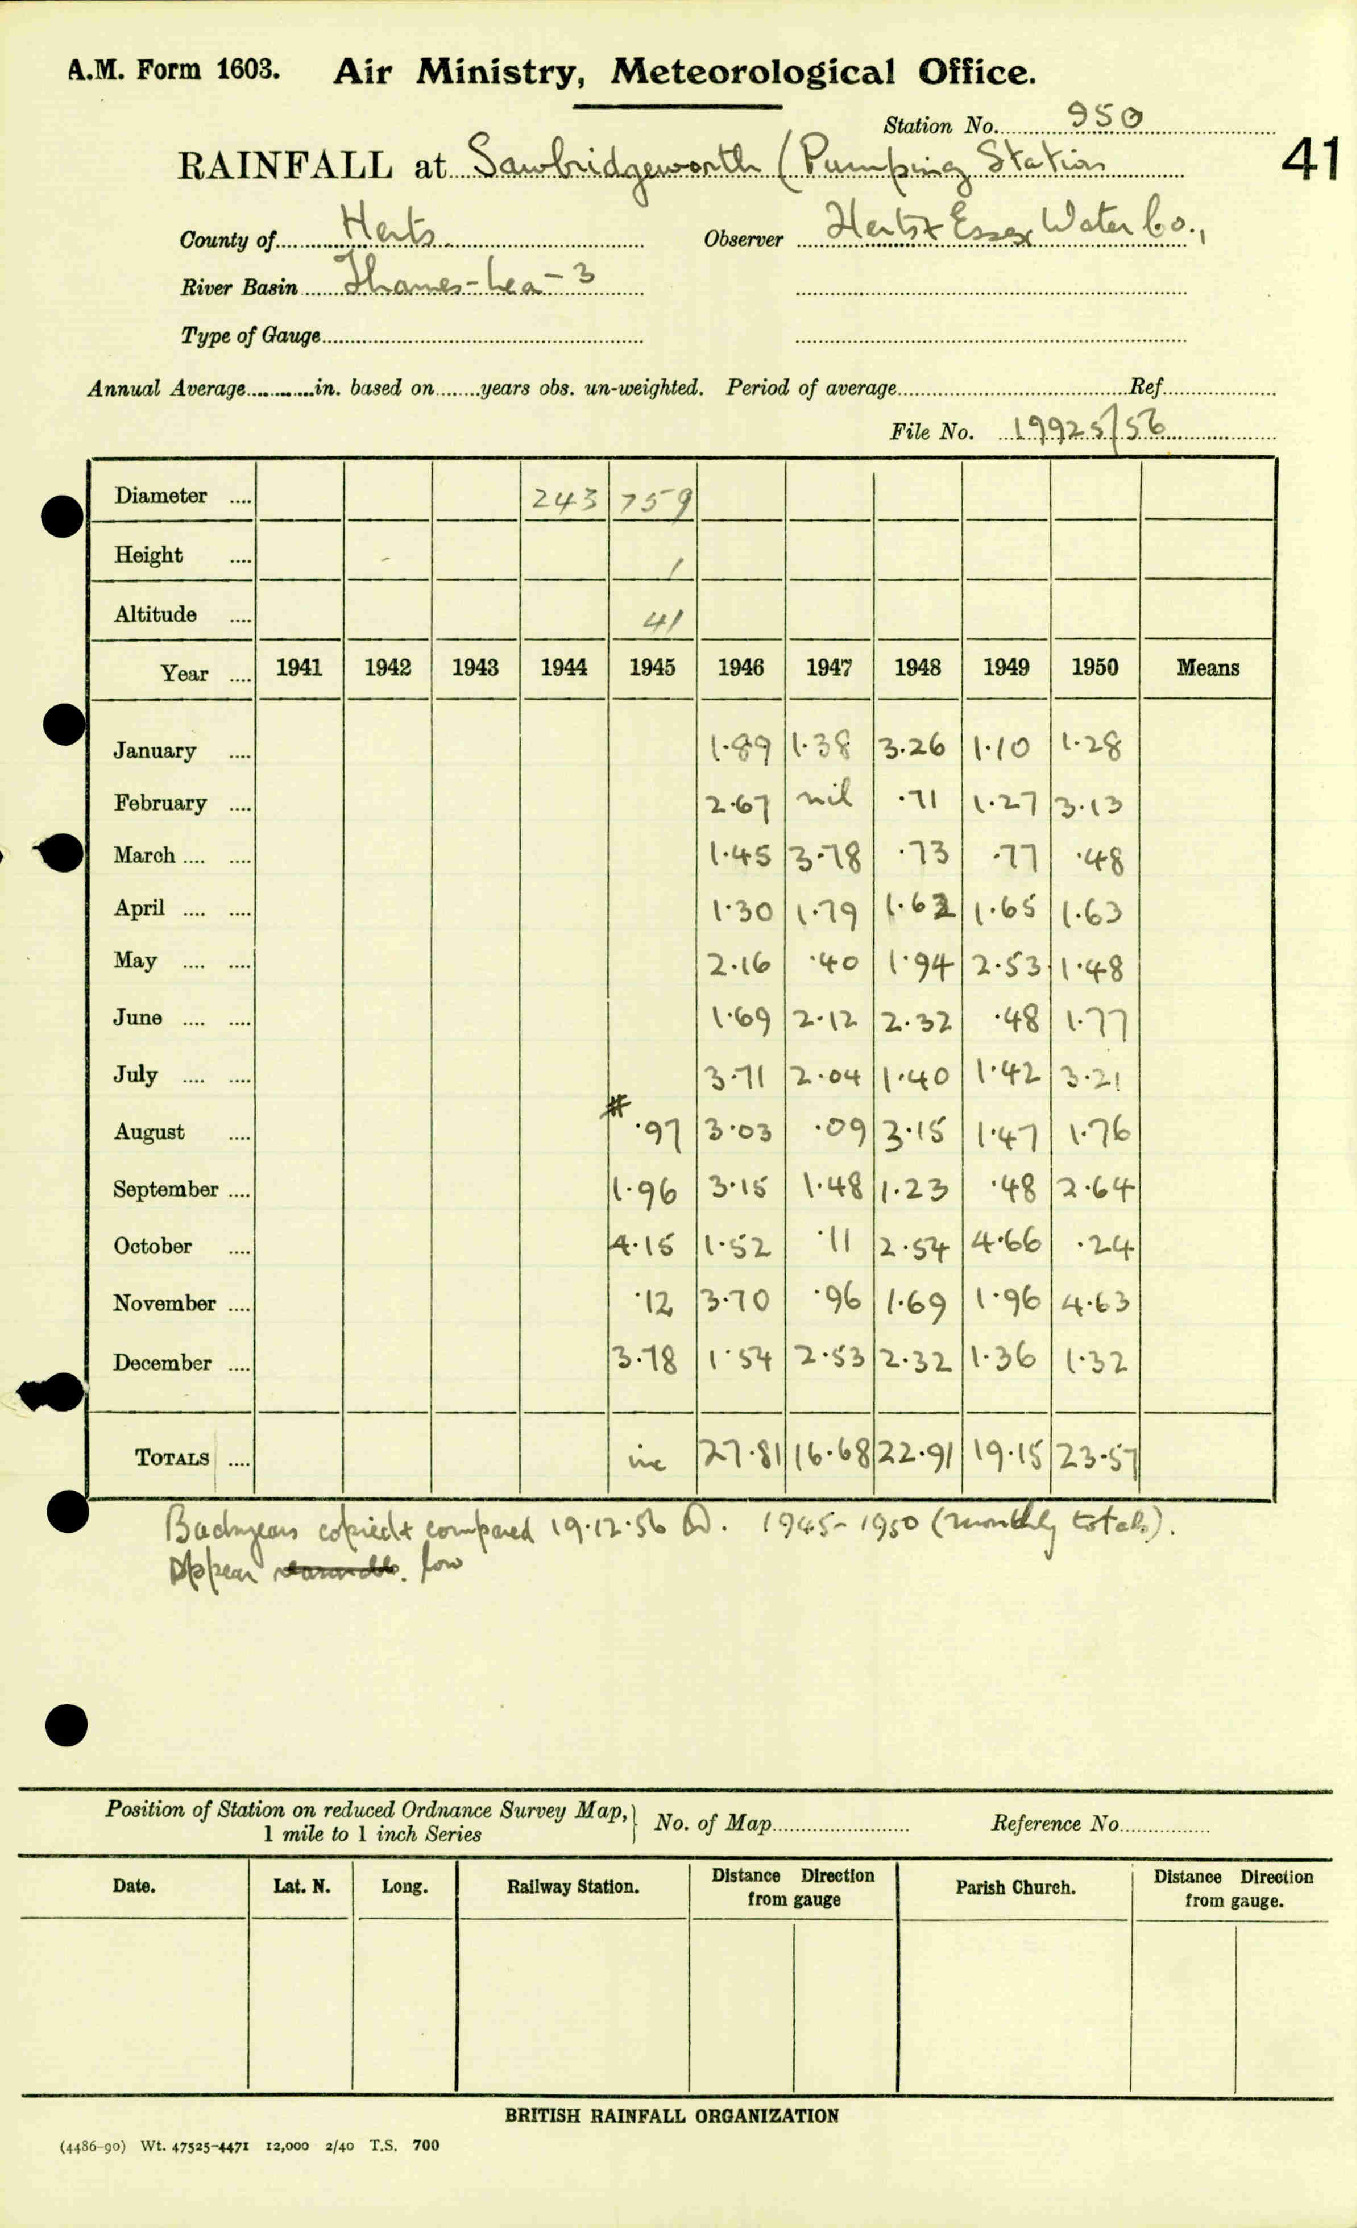 A.M. Form 1603. Air Ministry, Meteorological Office.
Station No. 950
41
RAINFALL at Sawbridgeworth (Pumping Station
County of Herts. Observer Herts & Essex Water Co.,
River Basin Thames-Lea-3
Type of Gauge
Annual Average in. based on years obs. un-weighted. Period of average Ref
File No. 19925/56
Diameter .... 243 759
Height .... 1
Altitude .... 41
Year .... 1941 1942 1943 1944 1945 1946 1947 1948 1949 1950 Means
January .... 1.89 1.38 3.26 1.10 1.28
February .... 2.67 nil .71 1.27 3.13
March .... .... 1.45 3.78 .73 .77 .48
April .... .... 1.30 1.79 1.62 1.65 1.63
May .... .... 2.16 .40 1.94 2.53 1.48
June .... .... 1.69 2.12 2.32 .48 1.77
July .... .... 3.71 2.04 1.40 1.42 3.21
August .... # .97 3.03 .09 3.15 1.47 1.76
September .... 1.96 3.15 1.48 1.23 .48 2.64
October .... 4.15 1.52 .11 2.54 4.66 .24
November .... .12 3.70 .96 1.69 1.96 4.63
December .... 3.78 1.54 2.53 2.32 1.36 1.32
TOTALS .... inc 27.81 16.68 22.91 19.15 23.57
Backyears copied & compared 19.12.56 . 1945-1950 (monthly totals).
Appear low
Position of Station on reduced Ordnance Survey Map, 1 mile to 1 inch Series } No. of Map Reference No
Date. Lat. N. Long. Railway Station. Distance Direction from gauge Parish Church. Distance Direction from gauge.
BRITISH RAINFALL ORGANIZATION
(4486-90) Wt. 47525-4471 12,000 2/40 T.S. 700